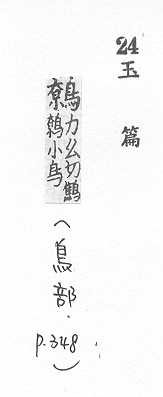 24
玉篇
鷯力么切鷦
鷯小鳥
(鳥部.
p.348)